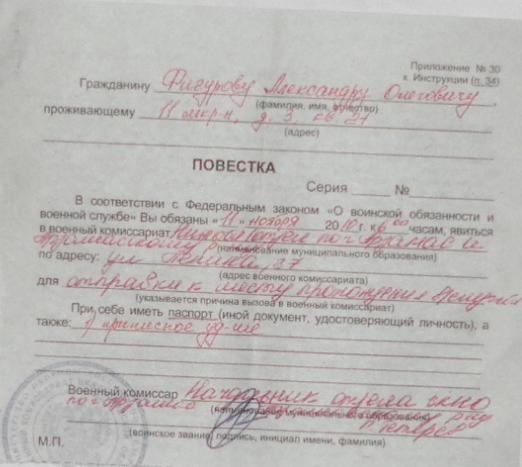 Приложение № 30
к Инструкции (п. 34)
Гражданину Фигурову Александру Олеговичу
(фамилия, имя, отчество)
проживающему 11 мкр-н, д. 3, кв 21
(адрес)
ПОВЕСТКА
Серия № 
В соответствии с Федеральным законом «О воинской обязанности и
военной службе» Вы обязаны «11» ноября 2010 г. к 6 00 часам, явиться
в военный комиссариат по г Арзамас и
Арзамасскому р
(наименование муниципального образования)
по адресу: ул Ленина, 27
(адрес военного комиссариата)
для отправки к месту прохождения
(указывается причина вызова в военный комиссариат)
При себе иметь паспорт (иной документ, удостоверяющий личность), а
также: 1) приписное уд-ние
Военный комиссар Начальник отдела
по г Арзамас
(наименование муниципального образования)
(воинское звание, подпись, инициал имени, фамилия)
М.П.